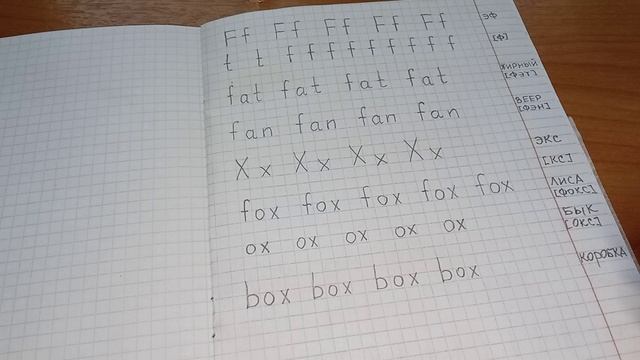 Ff Ff Ff Ff Ff эф
t t f f f f f f f f f [ф]
fat fat fat fat жирный [фэт]
fan fan fan fan веер [фэн]
Xx Xx Xx Xx экс [кс]
fox fox fox fox fox лиса [фокс]
ox ox ox ox ox бык [окс]
box box box box коробка